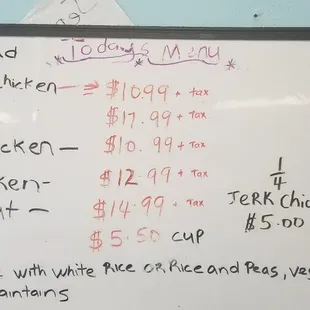 Today's Menu
chicken — $10.99 + tax
$17.99 + tax
cken — $10.99 + Tax
ken - $12.99 + Tax
t — $14.99 + Tax
$5.50 cup
1/4
Jerk Chic
$5.00
with white Rice OR Rice and Peas, veg
aintains